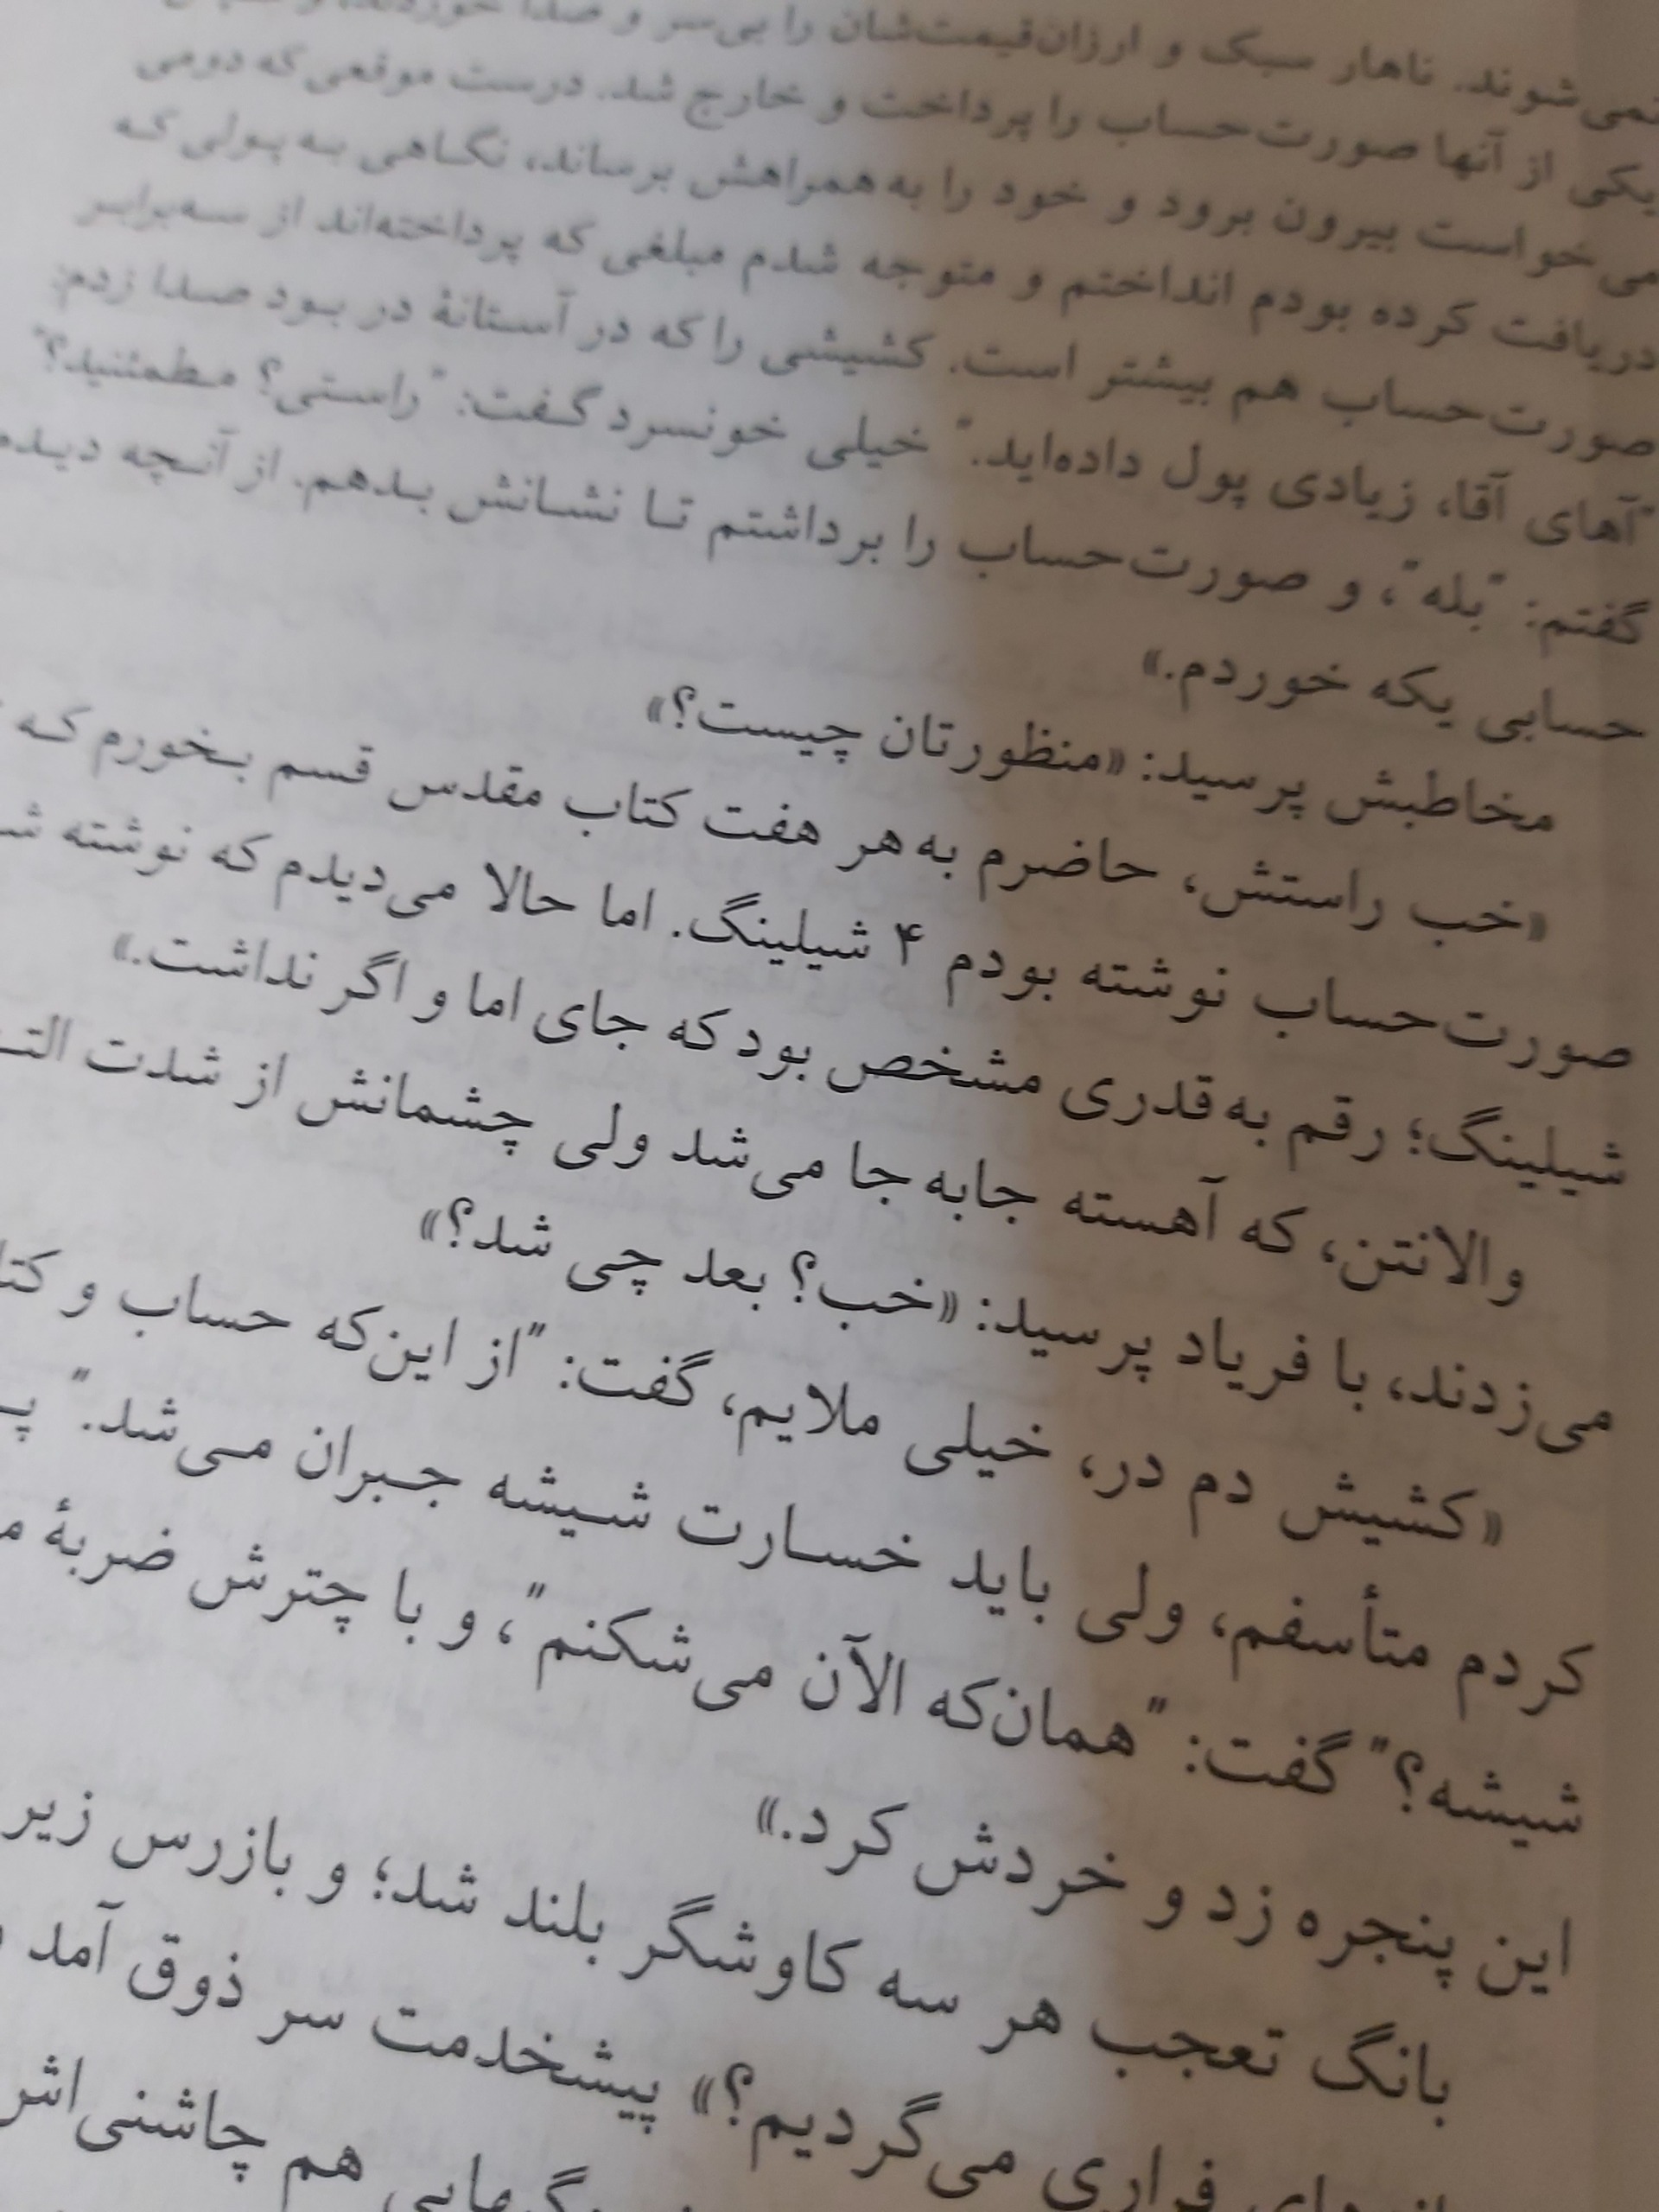 نمی‌شوند. ناهار سبک و ارزان‌قیمت‌شان را بی‌سر و صدا خوردند، و
یکی از آنها صورت‌حساب را پرداخت و خارج شد. درست موقعی که دومی
می‌خواست بیرون برود و خود را به همراهش برساند، نگاهی به پولی که
دریافت کرده بودم انداختم و متوجه شدم مبلغی که پرداخته‌اند از سه‌برابر
صورت‌حساب هم بیشتر است. کشیشی را که در آستانهٔ در بود صدا زدم:
"آهای آقا، زیادی پول داده‌اید." خیلی خونسرد گفت: "راستی؟ مطمئنید؟"
گفتم: "بله"، و صورت‌حساب را برداشتم تا نشانش بدهم. از آنچه دیدم
حسابی یکه خوردم.»
مخاطبش پرسید: «منظورتان چیست؟»
«خب راستش، حاضرم به هر هفت کتاب مقدس قسم بخورم که
صورت‌حساب نوشته بودم ۴ شیلینگ. اما حالا می‌دیدم که نوشته
شیلینگ؛ رقم به‌قدری مشخص بود که جای اما و اگر نداشت.»
والانتن، که آهسته جابه‌جا می‌شد ولی چشمانش از شدت
می‌زدند، با فریاد پرسید: «خب؟ بعد چی شد؟»
«کشیش دم در، خیلی ملایم، گفت: "از این‌که حساب و
کردم متأسفم، ولی باید خسارت شیشه جبران می‌شد."
شیشه؟" گفت: "همان‌که الآن می‌شکنم"، و با چترش ضربهٔ
این پنجره زد و خردش کرد.»
بانگ تعجب هر سه کاوشگر بلند شد؛ و بازرس زیر
فراری می‌گردیم؟» پیشخدمت سر ذوق آمد
هم چاشنی‌اش